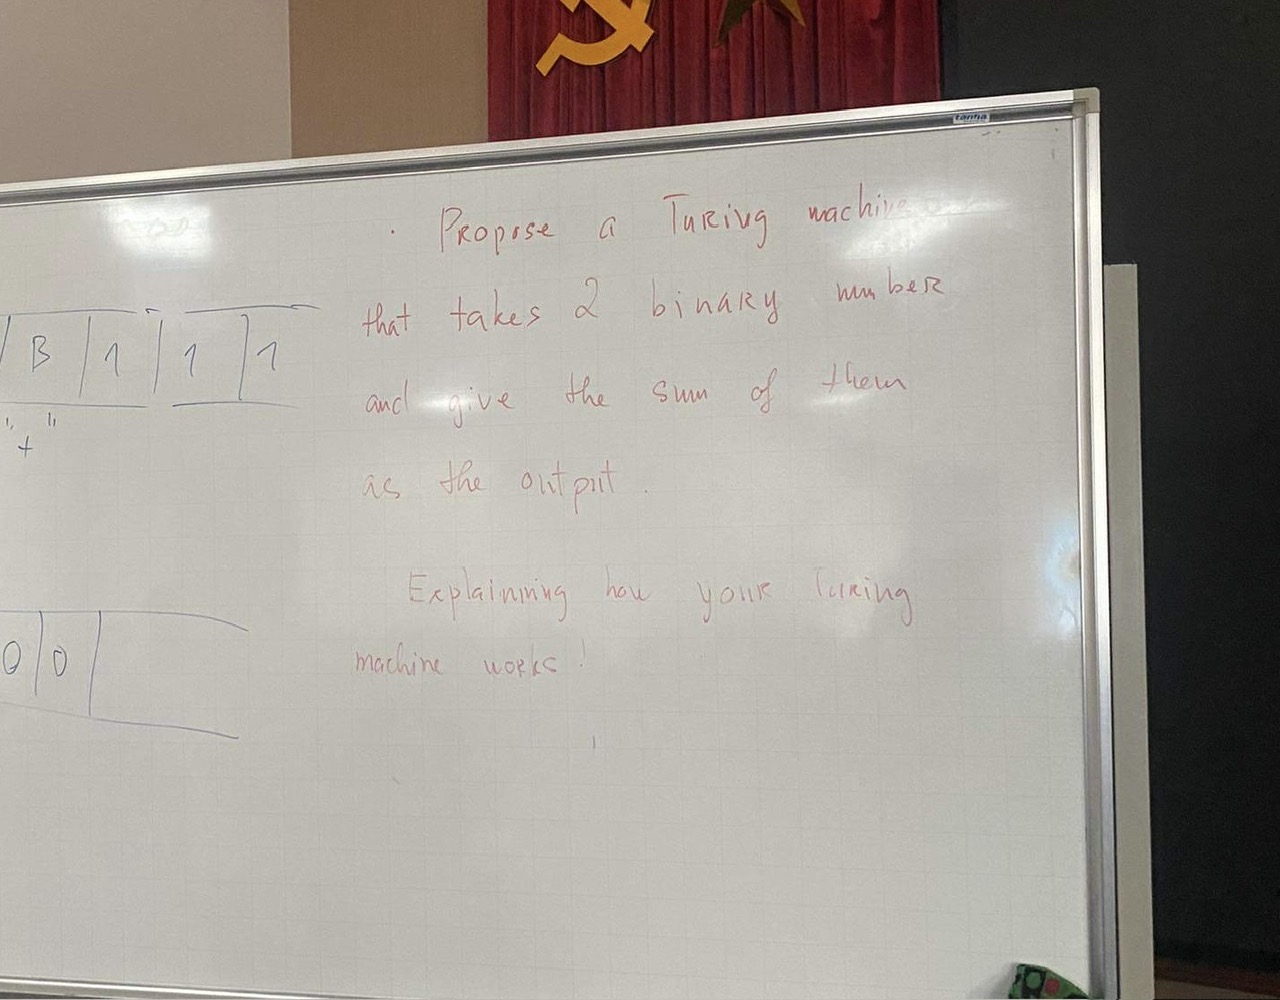 tanha
. Propose a Turing machine
that takes 2 binary number
and give the sum of them
as the output .
B 1 1 1
" + "
Explainning how your Turing
machine works !
0 0